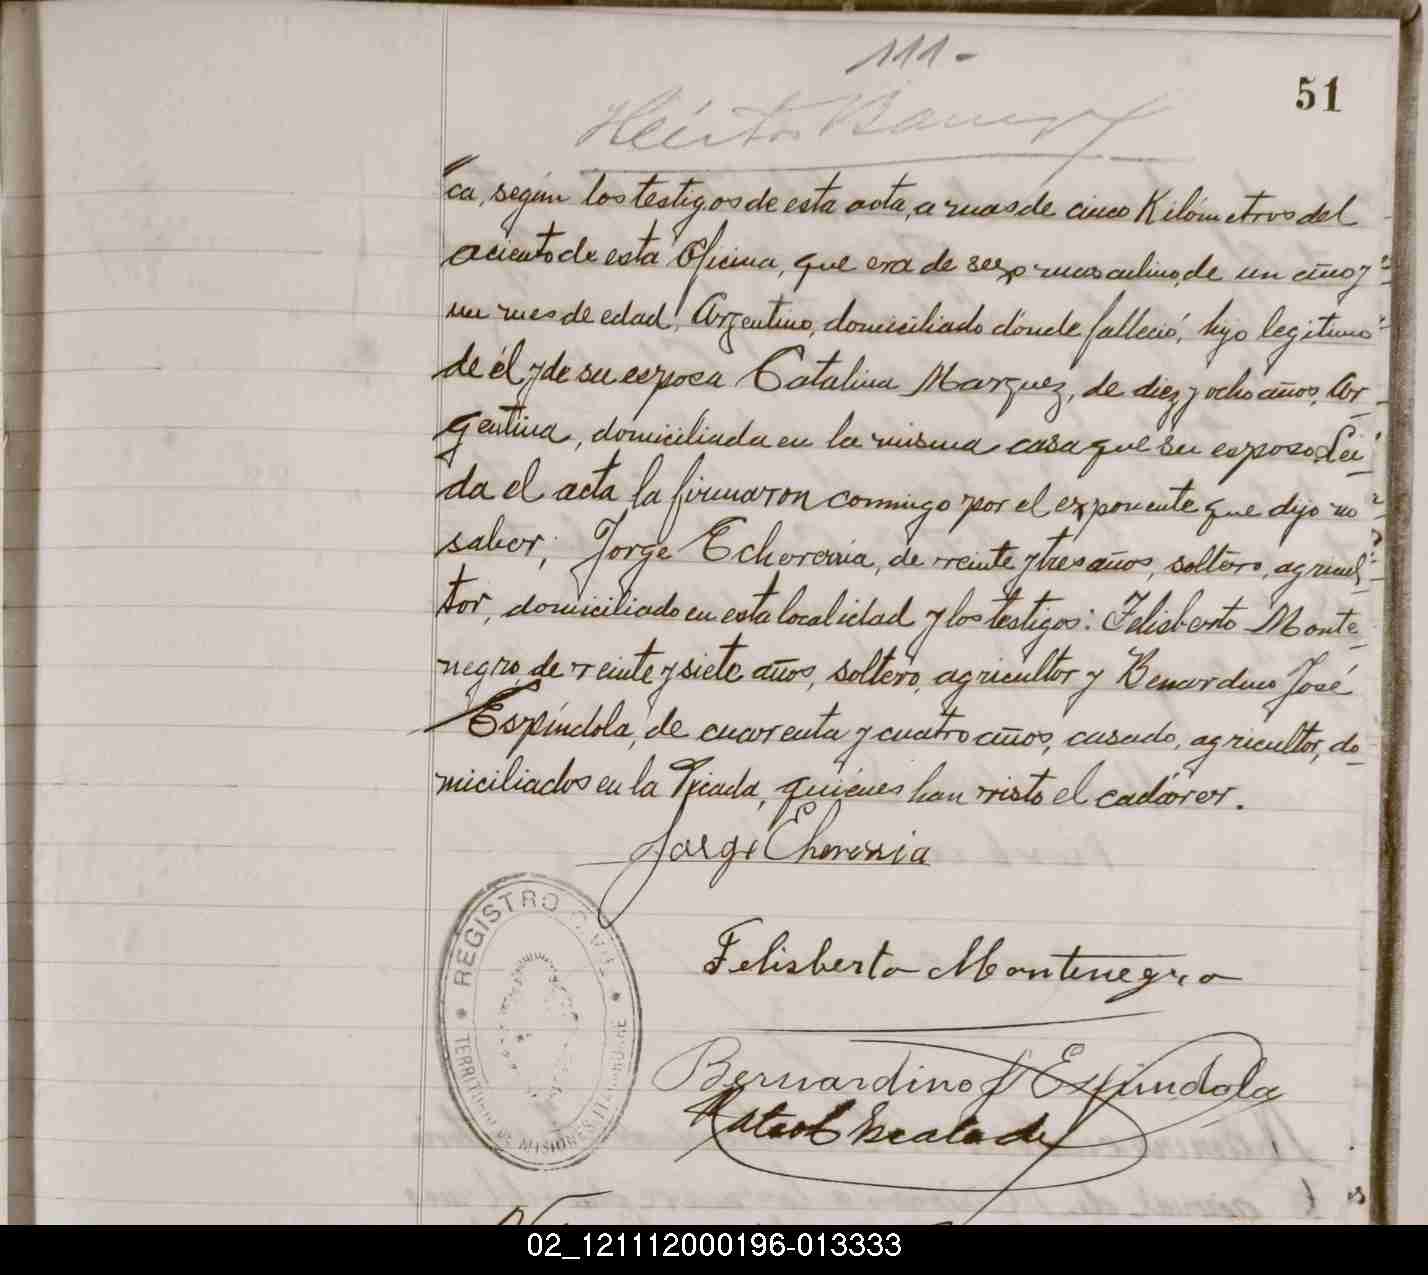 111-
51
Héctor
ca, según los testigos de esta acta, a mas de cinco Kilómetros del
aciento de esta Oficina, que era de sexo masculino, de un año y
un mes de edad, Argentino, domiciliado dónde falleció, hijo legitimo
de él y de su esposa Catalina Marquez, de diez y ocho años, Ar-
gentina, domiciliada en la misma casa que su esposo. Leí-
da el acta la firmaron conmigo por el exponente que dijo no
saber; Jorge Echeverria, de veinte y tres años, soltero, agricul-
tor, domiciliado en esta localidad y los testigos: Felisberto Monte-
negro, de veinte y siete años, soltero, agricultor y Bernardino José
Espíndola, de cuarenta y cuatro años, casado, agricultor, do-
miciliados en la Picada, quiénes han visto el cadáver.
Jorge Cheverria
Felisberto Montenegro
Bernardino J Espindola
Rafael Escalade
REGISTRO CIVIL
TERRITORIO DE MISIONES
02_121112000196-013333